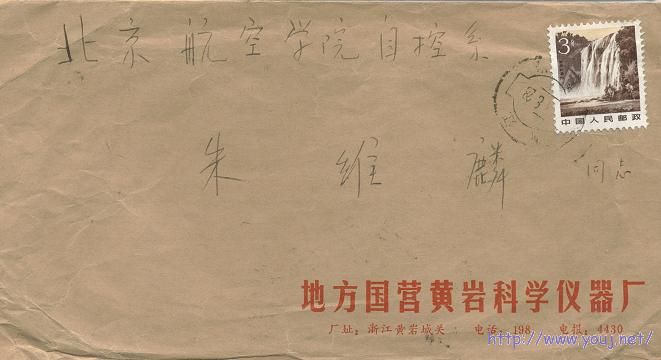 北京航空学院自控系
3分
中国人民邮政
朱维麟 同志
地方国营黄岩科学仪器厂
厂址：浙江黄岩城关 电话：198 电报：4430
http://www.youj.net/